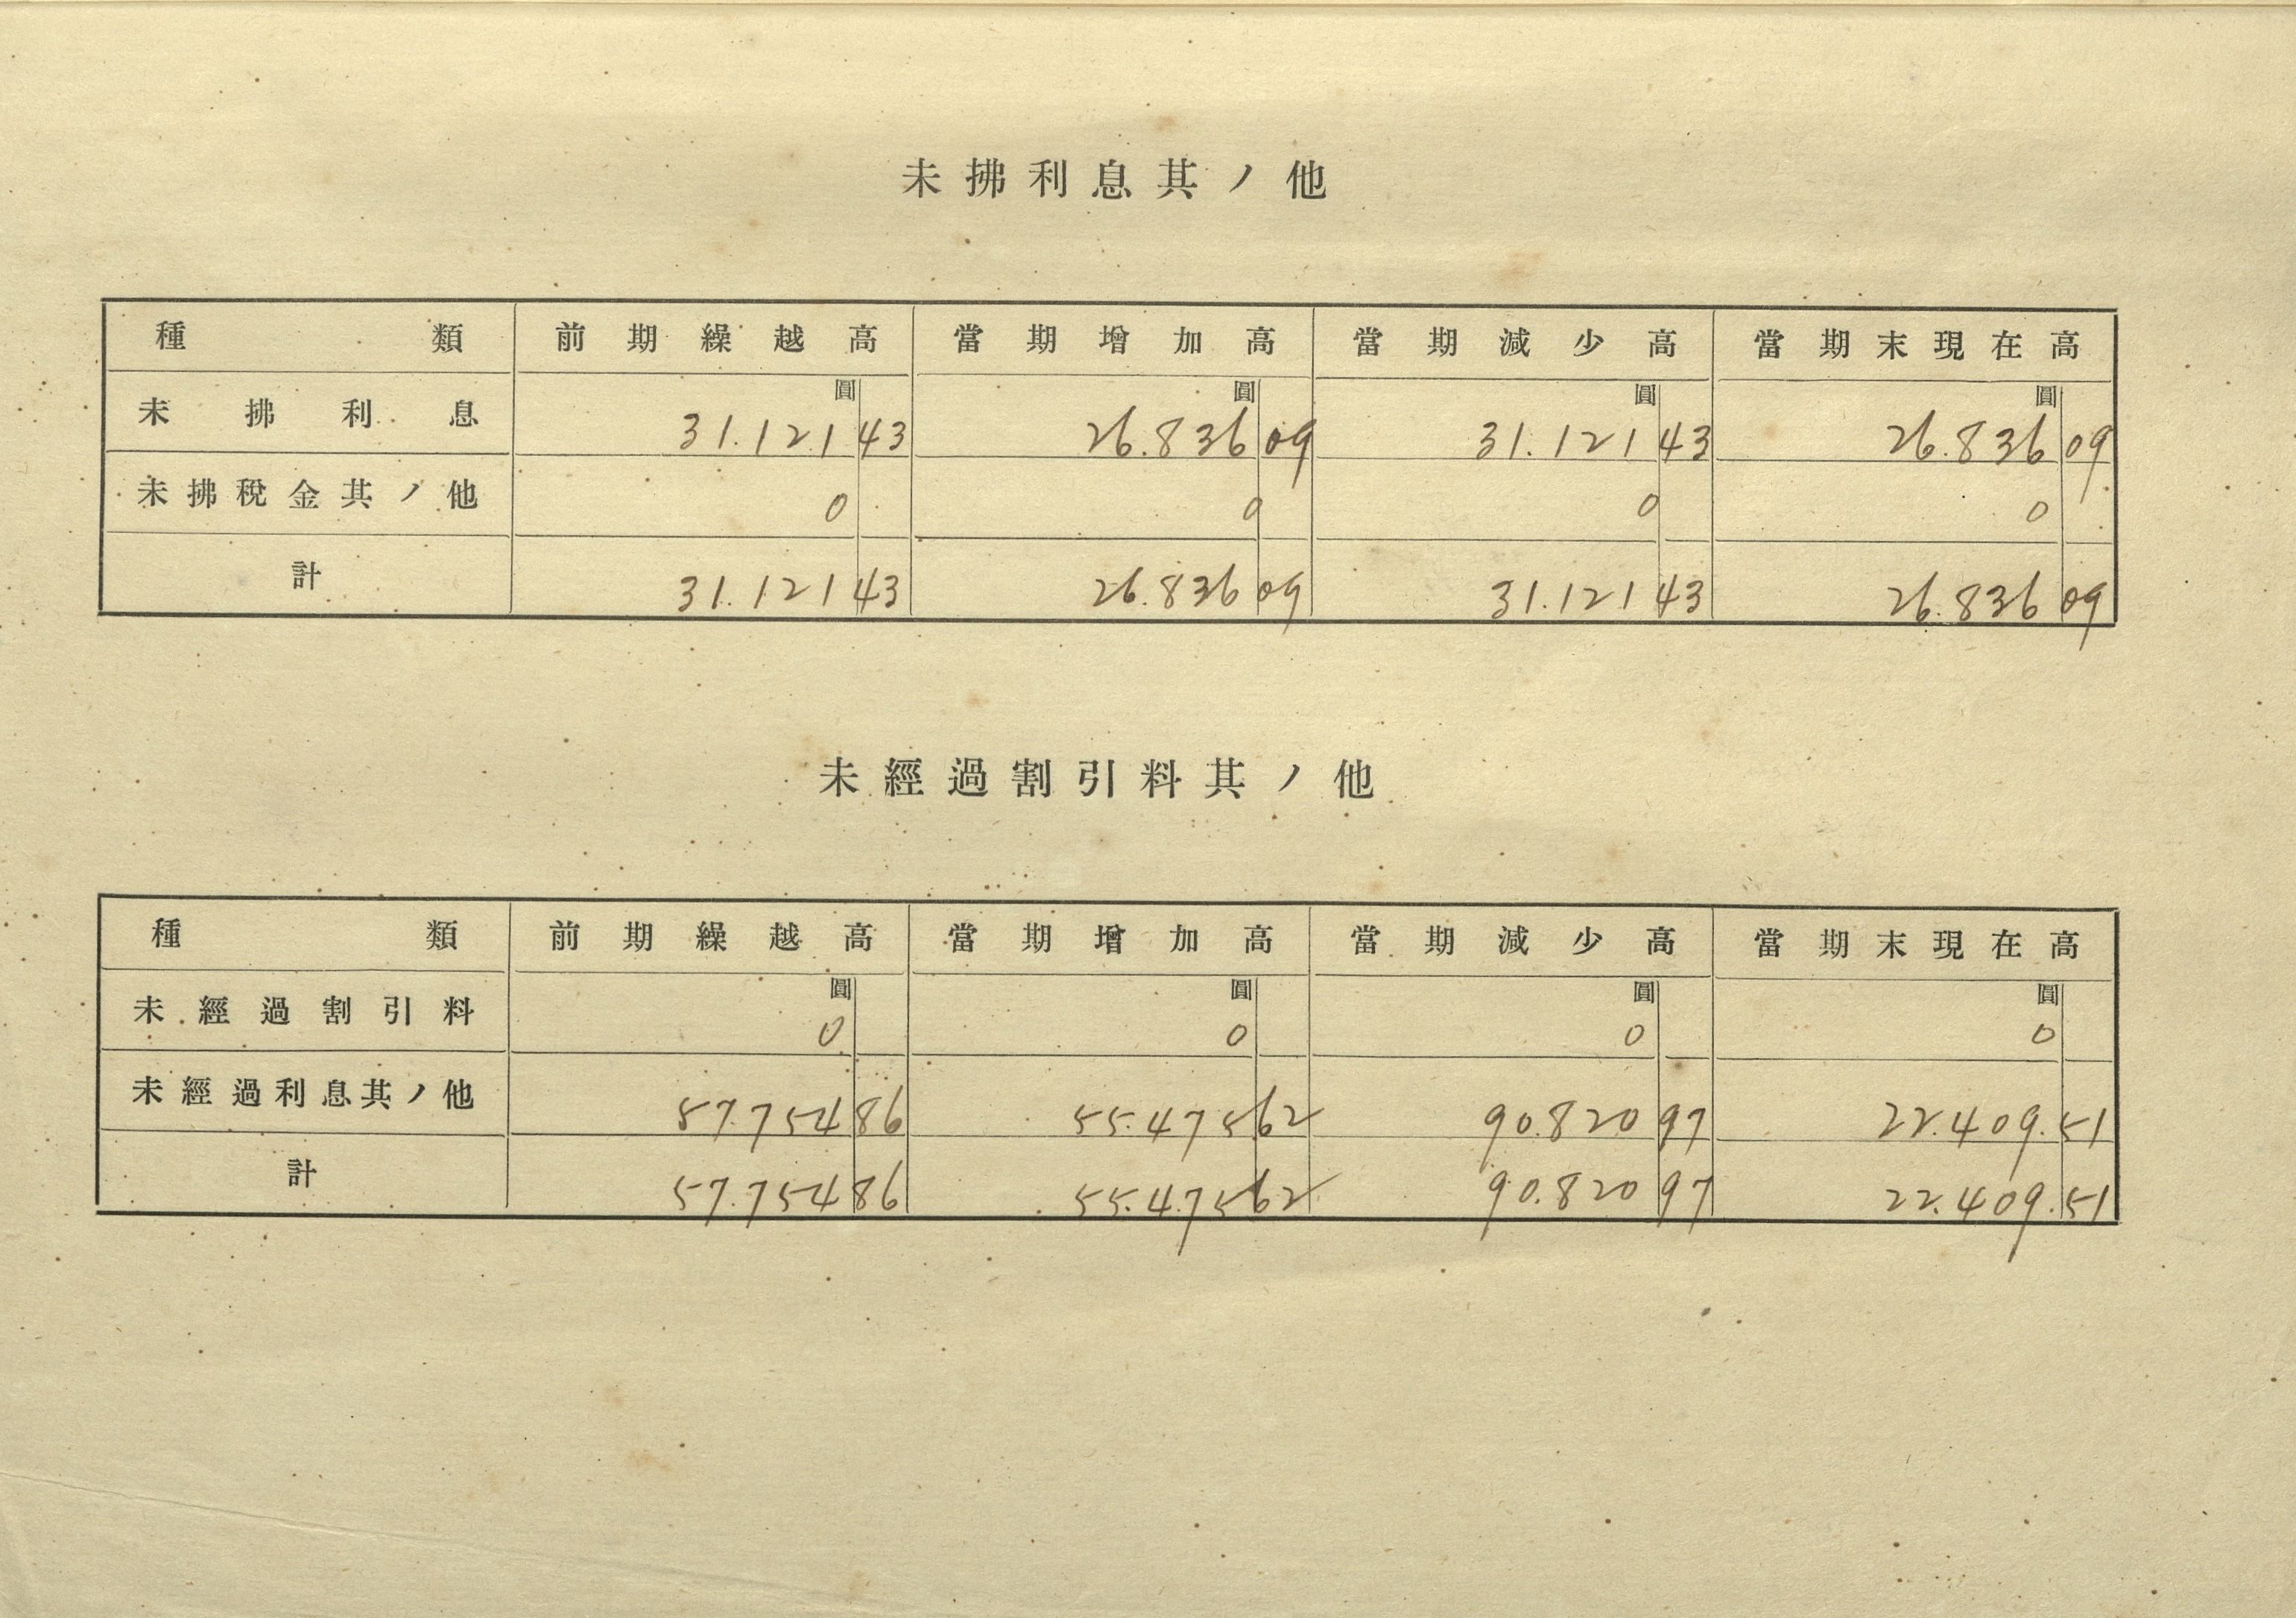 未拂利息其ノ他
種類 前期繰越高 當期增加高 當期減少高 當期末現在高
圓 圓 圓 圓
未拂利息 31.121 43 26.836 09 31.121 43 26.836 09
未拂稅金其ノ他 0 0 0 0
計 31.121 43 26.836 09 31.121 43 26.836 09
未經過割引料其ノ他
種類 前期繰越高 當期增加高 當期減少高 當期末現在高
圓 圓 圓 圓
未經過割引料 0 0 0 0
未經過利息其ノ他 57.754 86 55.475 62 90.820 97 22.409.51
計 57.754 86 55.475 62 90.820 97 22.409.51